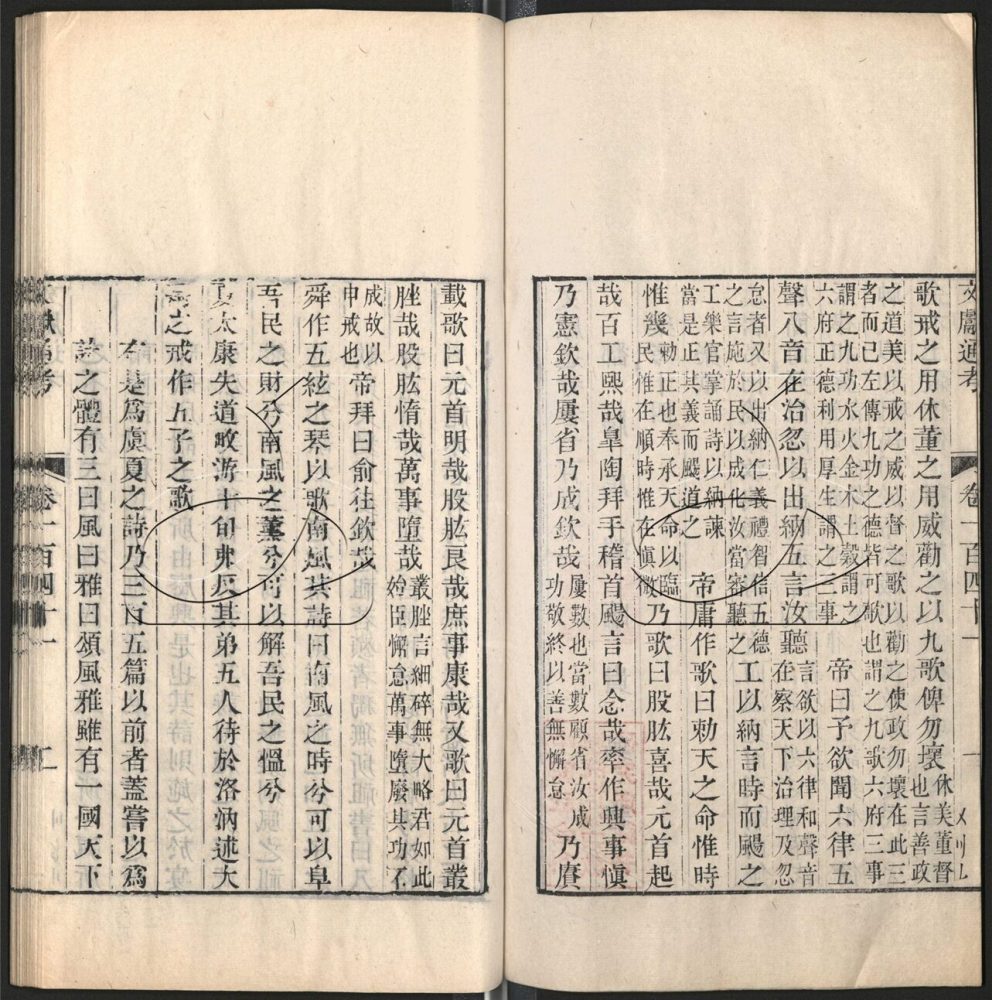 文獻通考 卷一百四十一 一
歌戒之用休董之用威勸之以九歌俾勿壞休美董督也言善政
之道美以戒之威以督之歌以勸之使政勿壞在此三者而已左傳九功之德皆可歌也謂之九歌六府三事
謂之九功水火金木土穀謂之六府正德利用厚生謂之三事 帝曰予欲聞六律五
聲八音在治忽以出納五言汝聽言欲以六律和聲音在察天下治理及忽
怠者又以出納仁義禮智信五德之言施於民以成化汝當審聽之 工以納言時而颺之
工樂官掌誦詩以納諫當是正其義而颺道之 帝庸作歌曰勅天之命惟時
惟幾勅正也奉承天命以臨民惟在順時惟在愼微 乃歌曰股肱喜哉元首起
哉百工熙哉臯陶拜手稽首颺言曰念哉率作興事愼
乃憲欽哉屢省乃成欽哉屢數也當數顧省汝成功敬終以善無懈怠 乃賡
載歌曰元首明哉股肱良哉庶事康哉又歌曰元首叢
脞哉股肱惰哉萬事墮哉叢脞言細碎無大略君如此始臣懈怠萬事墮廢其功不
成故以申戒也 帝拜曰俞往欽哉
舜作五絃之琴以歌南風其詩曰南風之時兮可以阜
吾民之財兮南風之薰兮可以解吾民之慍兮
夏太康失道畋游十旬弗反其弟五人待於洛汭述大
禹之戒作五子之歌
右是爲虞夏之詩乃三百五篇以前者蓋嘗以爲
詩之體有三曰風曰雅曰頌風雅雖有一國天下
文獻通考 卷一百四十一